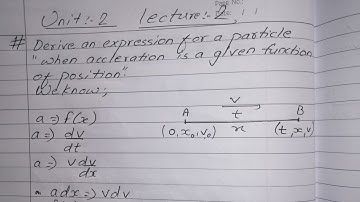 Unit:-2 lecture:-2
# Derive an expression for a particle
"when accleration is a given function
of position".
We know;
a => f(x)
a => dv/dt
a => vdv/dx
∴ adx => vdv
v
t
A B
(0, x₀, v₀) x (t, x, v)